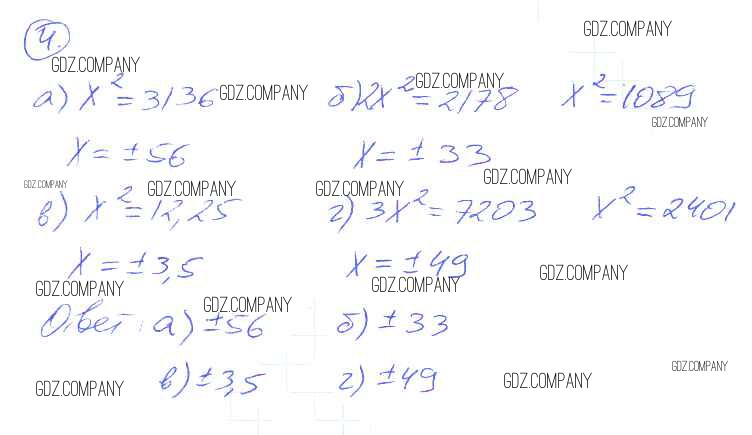 4.
GDZ.COMPANY
GDZ.COMPANY
а) x² = 3136 GDZ.COMPANY б) 2x² = 2178 x² = 1089
GDZ.COMPANY
GDZ.COMPANY
x = ± 56 x = ± 33
GDZ.COMPANY
GDZ.COMPANY GDZ.COMPANY GDZ.COMPANY
в) x² = 12,25 г) 3x² = 7203 x² = 2401
x = ± 3,5 x = ± 49
GDZ.COMPANY
GDZ.COMPANY GDZ.COMPANY
GDZ.COMPANY
Ответ: а) ± 56 б) ± 33
GDZ.COMPANY
в) ± 3,5 г) ± 49
GDZ.COMPANY GDZ.COMPANY